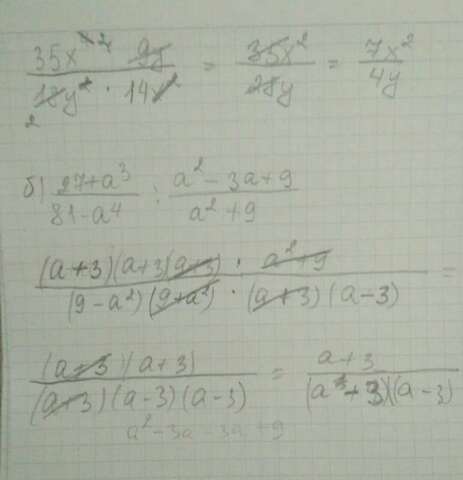 35x⁴ 9y / 18y² · 14x² = 35x² / 28y = 7x² / 4y
2
б) 27+a³ / 81-a⁴ : a²-3a+9 / a²+9
(a+3)(a+3)(a+3) · a²+9 / (9-a²)(9+a²) · (a+3)(a-3) =
(a+3)(a+3) / (a+3)(a-3)(a-3) = a+3 / (a+3)(a-3)
a²-3a-3a+9